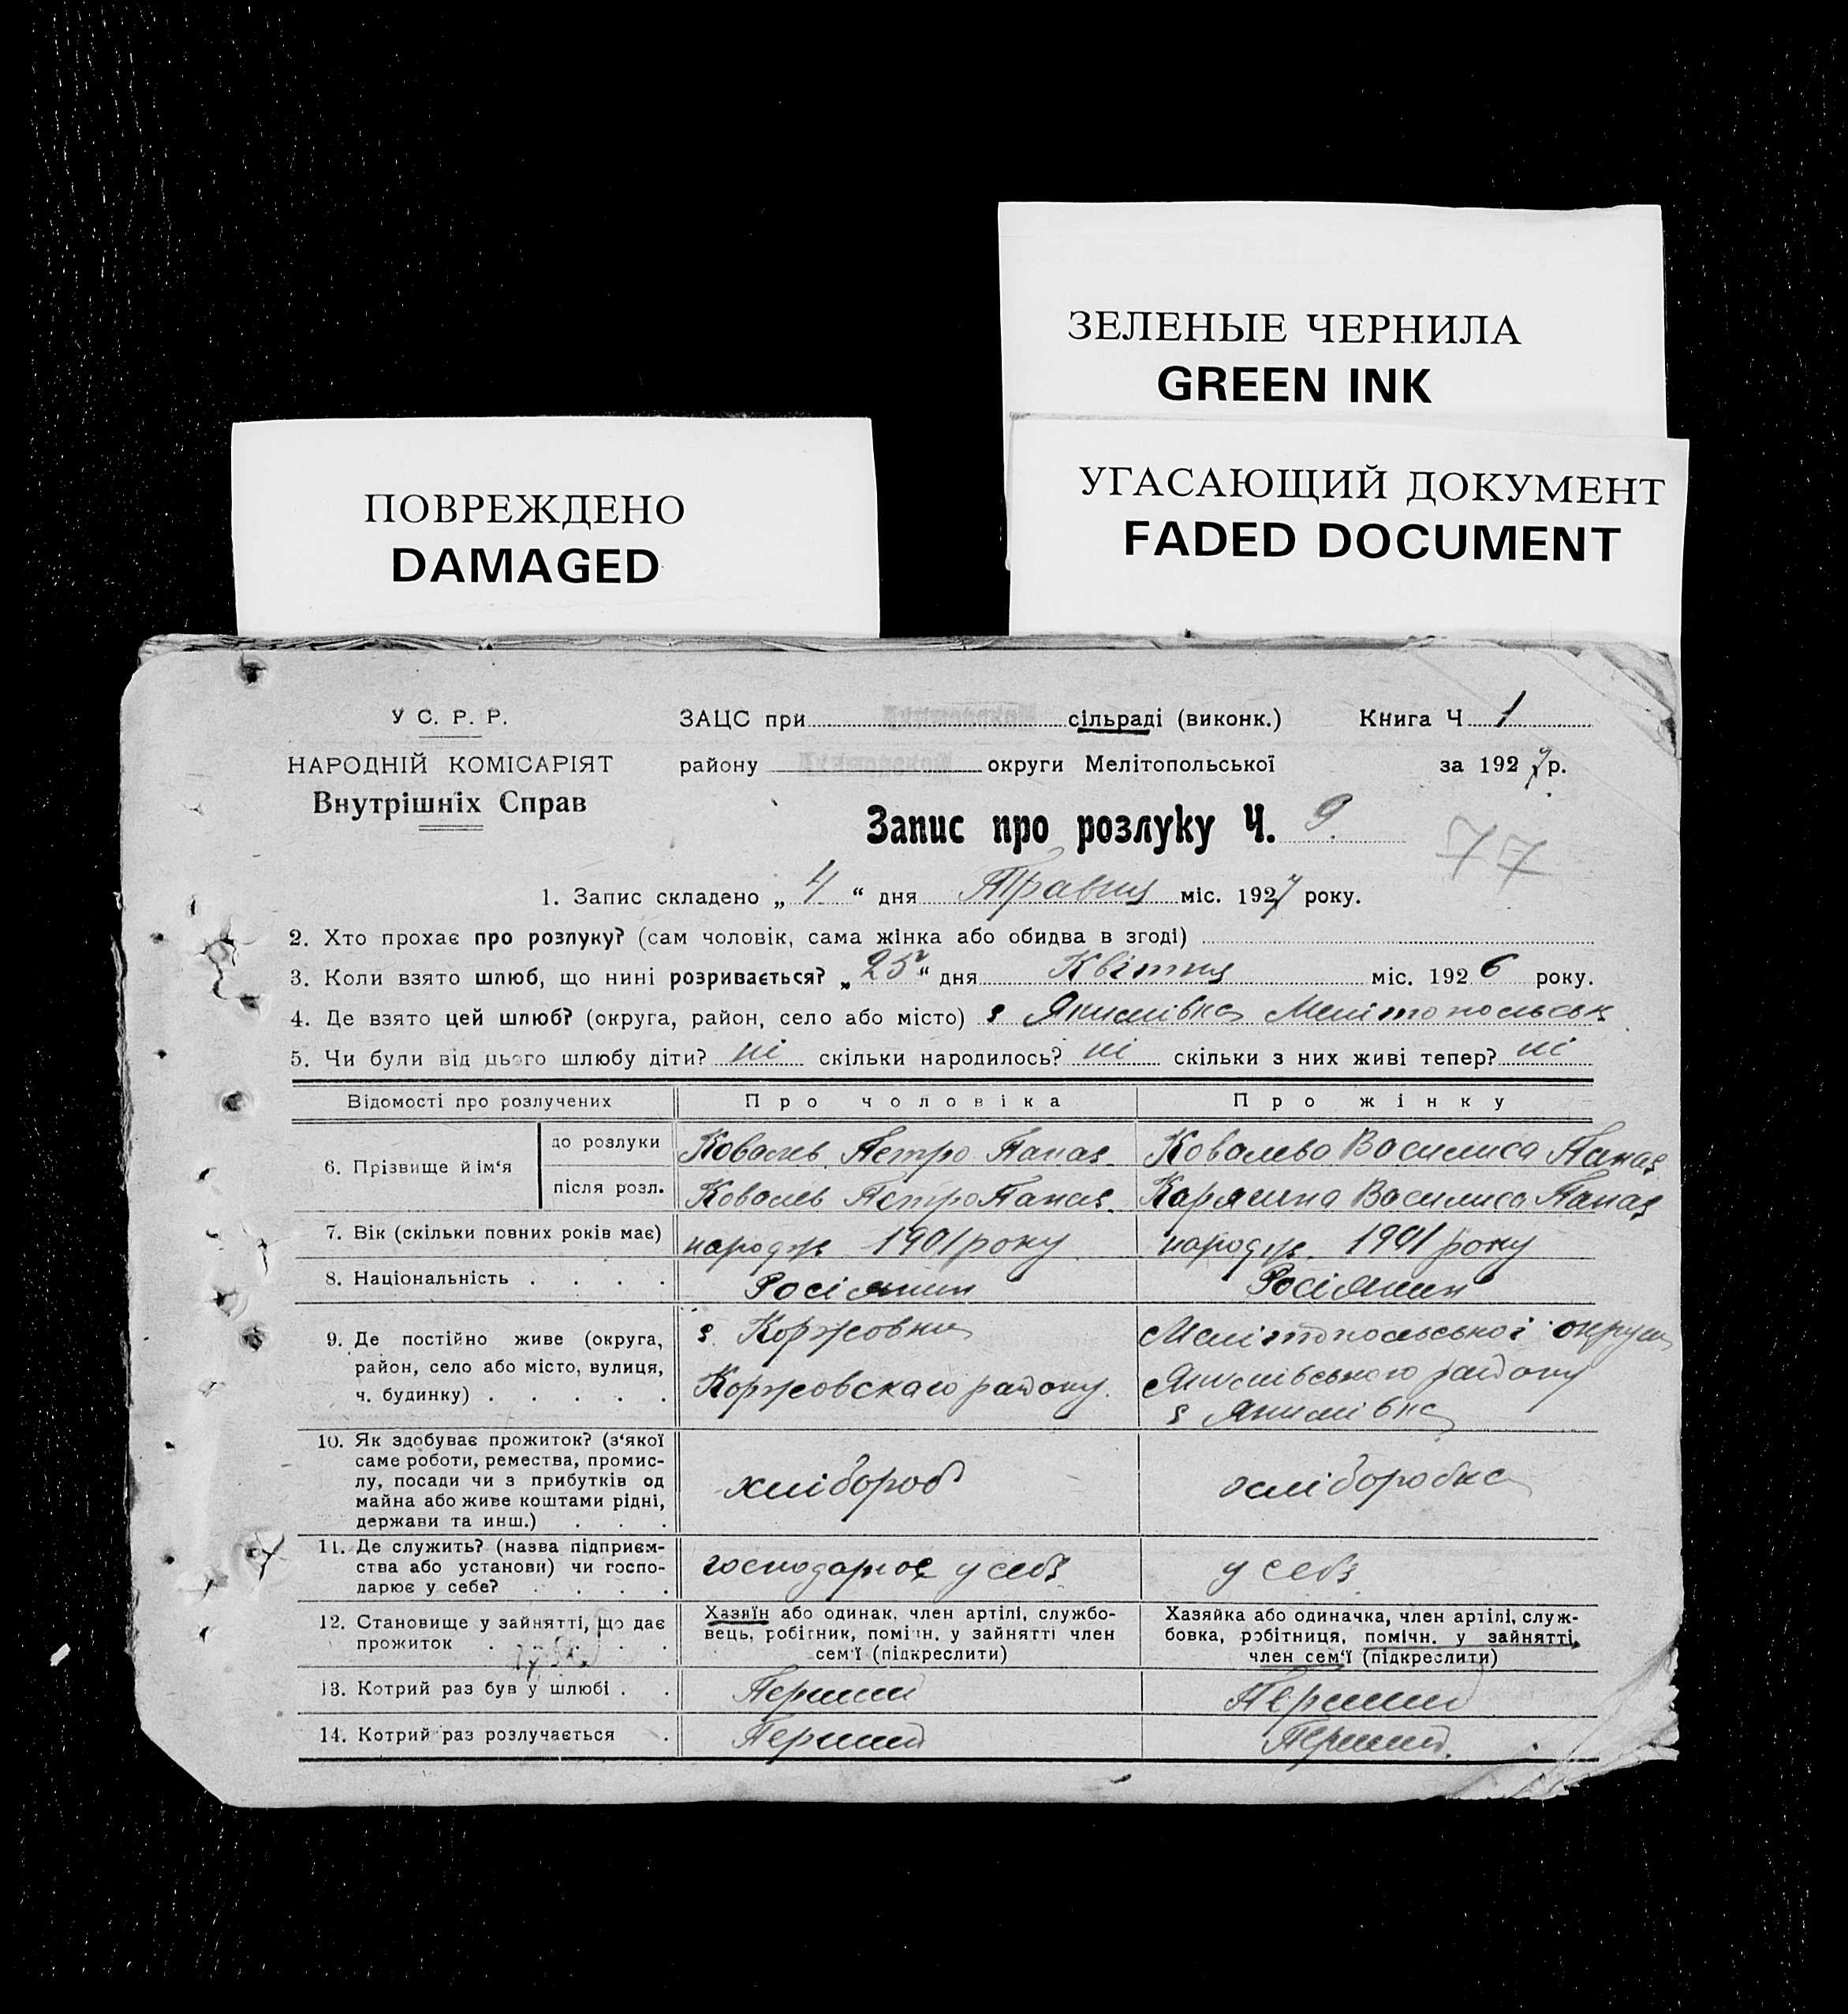 ЗЕЛЕНЫЕ ЧЕРНИЛА
GREEN INK
УГАСАЮЩИЙ ДОКУМЕНТ
FADED DOCUMENT
ПОВРЕЖДЕНО
DAMAGED
У С. Р. Р.
НАРОДНІЙ КОМІСАРІЯТ
Внутрішніх Справ
ЗАЦС при сільраді (виконк.) Книга Ч 1
району округи Мелітопольської за 1927 р.
Запис про розлуку Ч. 9.
77
1. Запис складено „ 4 “ дня Травня міс. 1927 року.
2. Хто прохає про розлуку? (сам чоловік, сама жінка або обидва в згоді)
3. Коли взято шлюб, що нині розривається? „ 25 “ дня Квітня міс. 1926 року.
4. Де взято цей шлюб? (округа, район, село або місто) с Якимівка Мелітопольськ
5. Чи були від цього шлюбу діти? ні скільки народилось? ні скільки з них живі тепер? ні
Відомості про розлучених Про чоловіка Про жінку
6. Прізвище й ім‘я
до розлуки Коваль Петро Панас. Ковальва Василиса Панас
після розл. Коваль Петро Панас. Василиса Панас
7. Вік (скільки повних років має) народж 1901 року народж. 1901 року
8. Національність . . . . Росіянин Росіянин
9. Де постійно живе (округа, район, село або місто, вулиця, ч. будинку) . . . . .
с.
району.
Мелітопольської округи
Якимівського району
с Якимівка
10. Як здобуває прожиток? (з‘якої саме роботи, ремества, промислу, посади чи з прибутків од майна або живе коштами рідні, держави та инш.) . . .
хлібороб хліборобка
11. Де служить? (назва підприємства або установи) чи господарює у себе? . . . .
господарює у себе у себе
12. Становище у зайнятті, що дає прожиток . . . . .
Хазяїн або одинак, член артілі, службовець, робітник, помічн. у зайнятті член сем‘ї (підкреслити)
Хазяйка або одиначка, член артілі, службовка, робітниця, помічн. у зайнятті, член сем‘ї (підкреслити)
13. Котрий раз був у шлюбі . . Перший Перший
14. Котрий раз розлучається . Перший Перший.